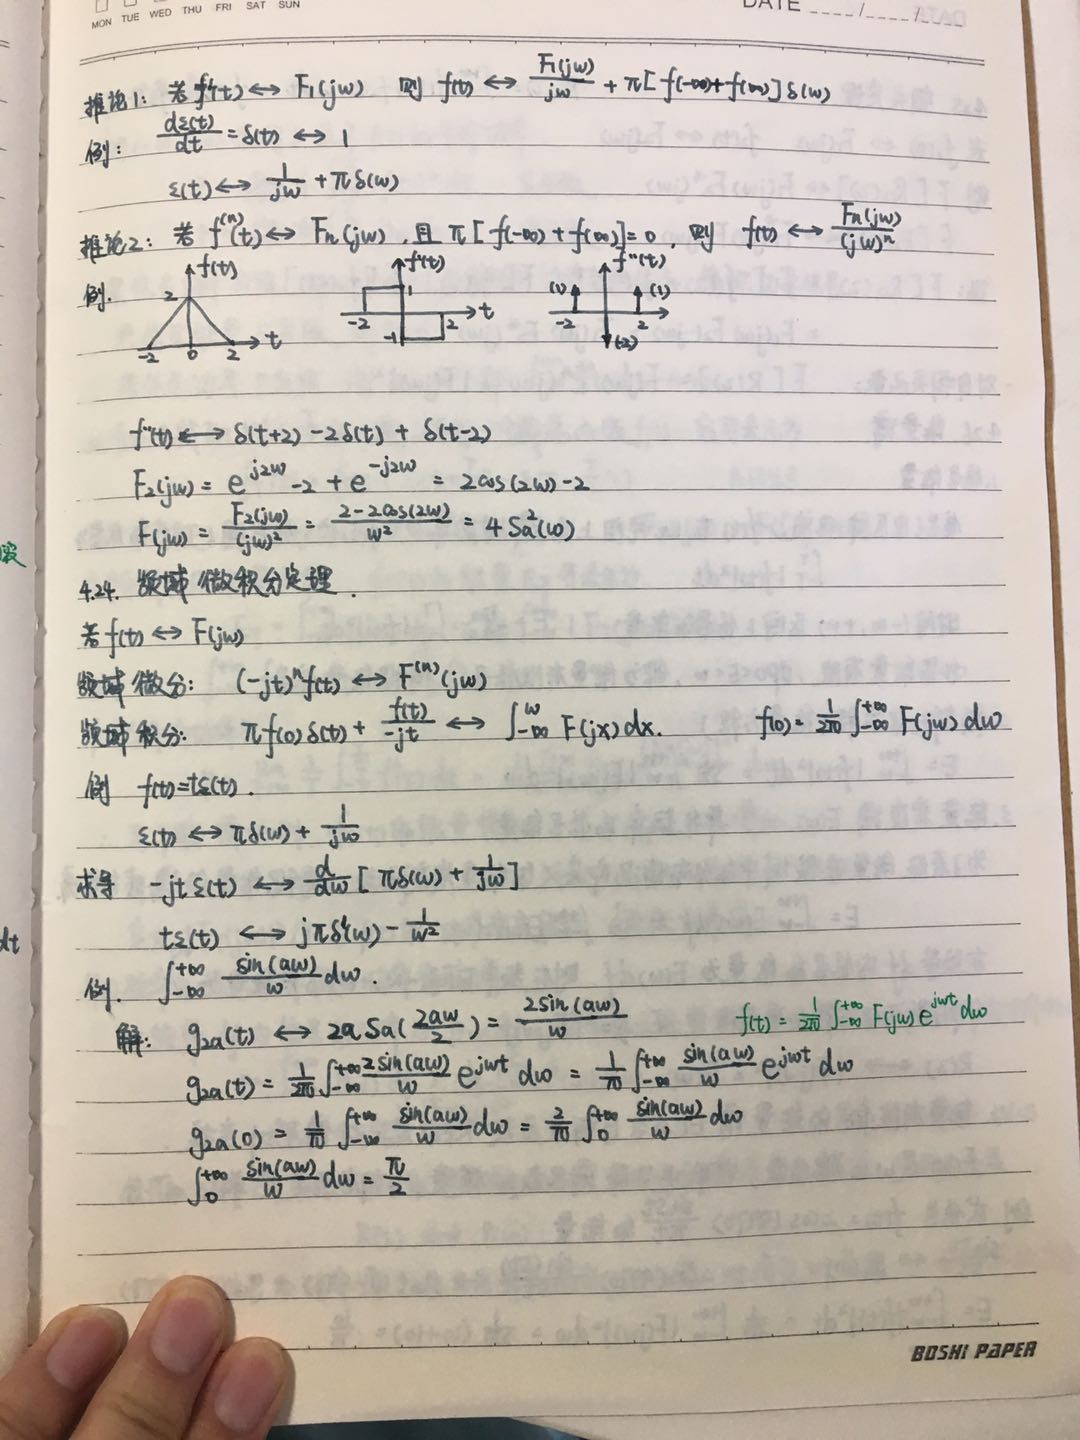 MON TUE WED THU FRI SAT SUN
DATE ____/____/____
推论1: 若f'(t)↔F₁(jω) 则 f(t)↔F₁(jω)/jω + π[f(-∞)+f(∞)]δ(ω)
例: dε(t)/dt = δ(t) ↔ 1
ε(t) ↔ 1/jω + πδ(ω)
推论2: 若 f⁽ⁿ⁾(t)↔Fn(jω), 且 π[f(-∞)+f(∞)]=0, 则 f(t)↔Fn(jω)/(jω)ⁿ
例.
f(t) 2 -2 0 2 t
f'(t) 1 -2 2 -1 t
f''(t) (1) (1) -2 2 (-2)
f''(t) ↔ δ(t+2) -2δ(t) + δ(t-2)
F₂(jω) = e^{j2ω} -2 + e^{-j2ω} = 2cos(2ω)-2
F(jω) = F₂(jω)/(jω)² = (2-2cos(2ω))/ω² = 4Sa²(ω)
4.24. 频域微积分定理.
若f(t)↔F(jω)
频域微分: (-jt)ⁿf(t)↔F⁽ⁿ⁾(jω)
频域积分: πf(0)δ(t) + f(t)/(-jt) ↔ ∫_{-∞}^{ω} F(jx)dx. f(0) = 1/2π ∫_{-∞}^{+∞} F(jω)dω
例 f(t)=tε(t).
ε(t) ↔ πδ(ω) + 1/jω
求导 -jtε(t) ↔ d/dω [πδ(ω) + 1/jω]
tε(t) ↔ jπδ'(ω) - 1/ω²
例. ∫_{-∞}^{+∞} sin(aω)/ω dω.
解: g₂ₐ(t) ↔ 2aSa(2aω/2) = 2sin(aω)/ω
f(t) = 1/2π ∫_{-∞}^{+∞} F(jω)e^{jωt}dω
g₂ₐ(t) = 1/2π ∫_{-∞}^{+∞} 2sin(aω)/ω e^{jωt} dω = 1/π ∫_{-∞}^{+∞} sin(aω)/ω e^{jωt} dω
g₂ₐ(0) = 1/π ∫_{-∞}^{+∞} sin(aω)/ω dω = 2/π ∫_{0}^{+∞} sin(aω)/ω dω
∫_{0}^{+∞} sin(aω)/ω dω = π/2
BOSHI PAPER